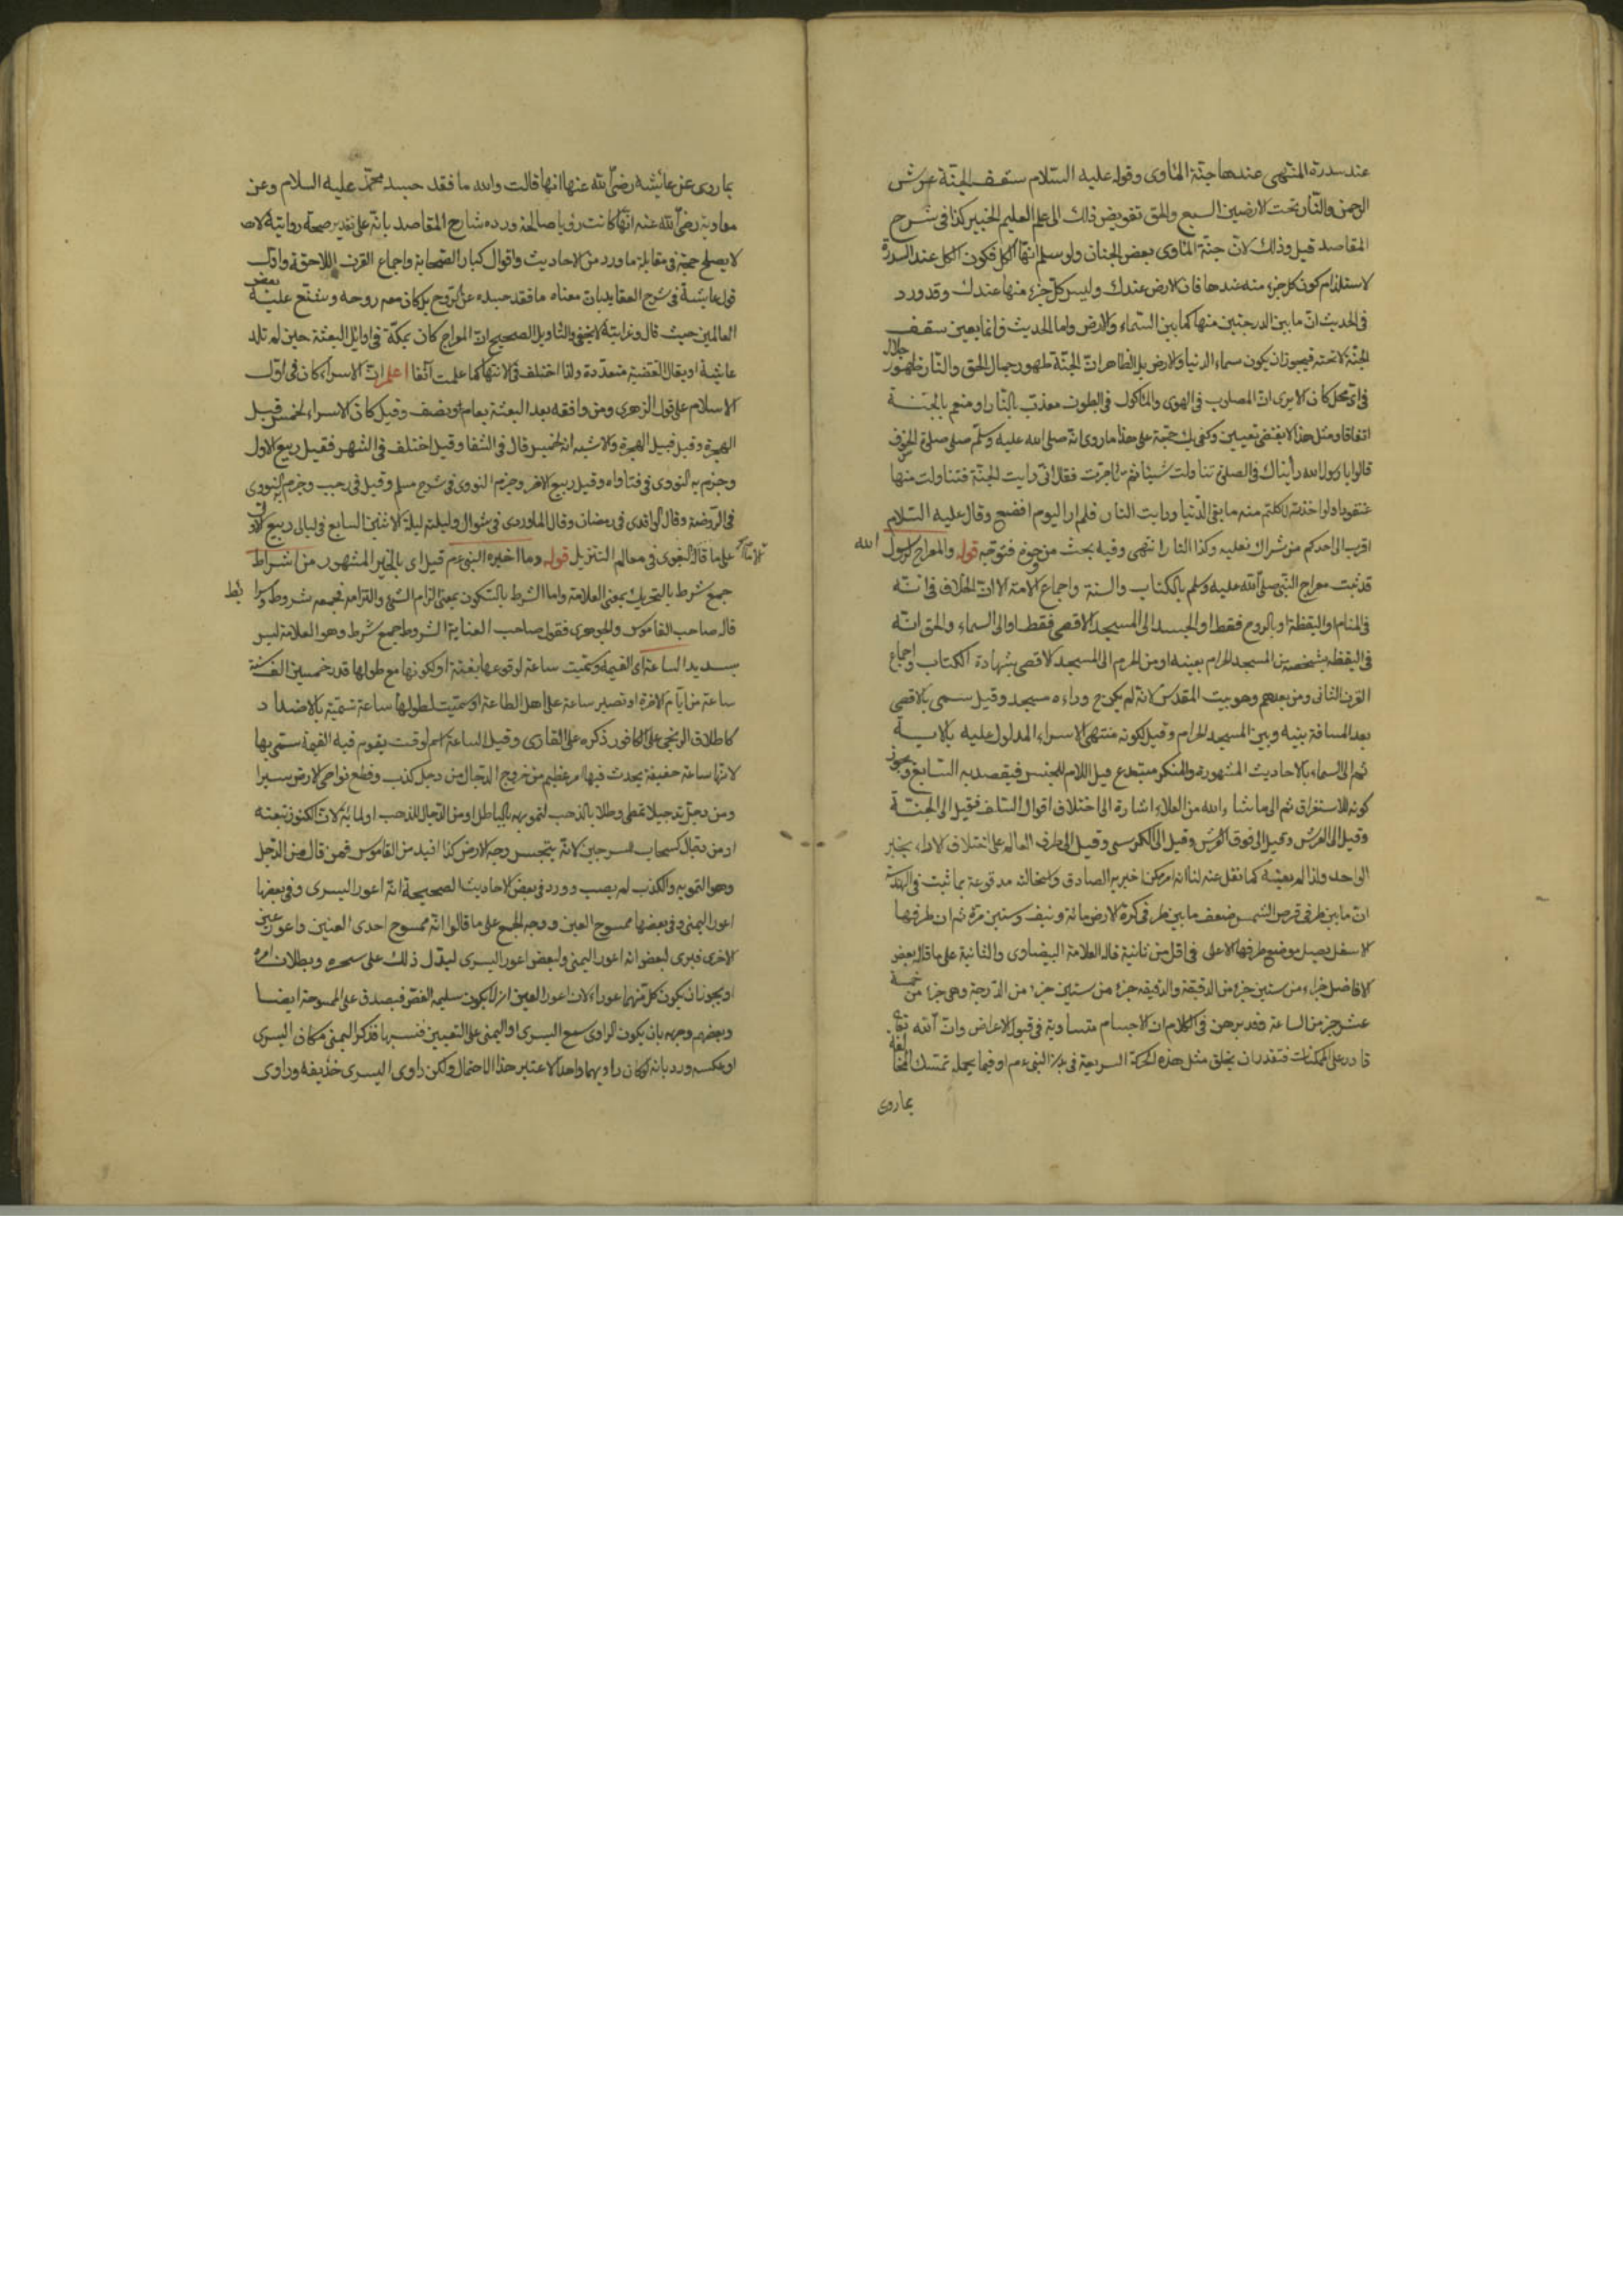 عند سدرة المنتهى عندها جنة المأوى وقوله عليه السلام سقف الجنة عرش
الرحمن والنار تحت الارضين السبع والحق تفويض ذلك الى علم العليم الخبير كذا فى شرح
المقاصد قيل وذلك لان جنة المأوى بعض الجنان ولو سلم انها الكل فكون الكل عند السدرة
لا يستلزم كون كل جزء منه عندها فان الارض عندك وليس كل جزء منها عندك وقد ورد
فى الحديث ان ما بين الدرجتين منها كما بين السماء والارض واما الحديث فانما يعين سقف
الجنة لا تحته فيجوز ان يكون سماء الدنيا والارض بل الظاهر ان الجنة ظهور جمال الحق والنار ظهور جلاله
فى اى محل كان الا يرى ان المصلوب فى الهوى والمأكول فى البطون معذب بالنار او منعم بالجنة
اتفاقا ومثل هذا لا يقتضى تعيين وكفى بك حجة على هذا ما روى انه صلى الله عليه وسلم صلى صلوة الخوف
قالوا يا رسول الله رأيناك فى الصلوة تناولت شيئا ثم تأخرت فقال انى رايت الجنة فتناولت منها
عنقودا ولو اخذته لاكلتم منه ما بقى الدنيا ورايت النار فلم ار اليوم افضع وقال عليه السلام
اقرب الى احدكم من شراك نعليه وكذا النار انتهى وفيه بحث من وجوه فتوجه قوله والمعراج لرسول الله
قد ثبت معراج النبى صلى الله عليه وسلم بالكتاب والسنة واجماع الامة الا ان الخلاف فى انه
فى المنام او اليقظة او بالروح فقط او الجسد الى المسجد الاقصى فقط او الى السماء والحق انه
فى اليقظه بشخصه من المسجد الحرام بعينه او من الحرم الى المسجد الاقصى بشهادة الكتاب واجماع
القرن الثانى ومن بعدهم وهو بيت المقدس لانه لم يكن ح وراءه مسجد وقيل سمى بالاقصى
بعد المسافة بينه وبين المسجد الحرام وقيل لكونه منتهى الاسراء المدلول عليه بالاية
ثم الى السماء بالاحاديث المشهورة والمنكر مبتدع قيل اللام للجنس فيقصد به السابع ويجوز
كونه للاستغراق ثم الى ما شاء الله من العلاء اشارة الى اختلاف اقوال السلف فقيل الى الجنة
وقيل الى العرش وقيل الى فوق العرش وقيل الى الكرسى وقيل الى طرف العالم على اختلاف الاراء بخبر
الواحد ولذا لم كما نقل عنه لنا انه امر ممكن اخبر به الصادق واستحالته مدفوعة بما ثبت فى الهندسة
ان ما بين طرفى قرص الشمس ضعف ما بين طرفى كرة الارض مائة ونيف وستين مرة ثم ان طرفها
الاسفل يصل موضع طرفها الاعلى فى اقل من ثانية قاله العلامة البيضاوى والثانية على ما قاله بعض
الافاضل جزء من ستين جزء من الدقيقة والدقيقه جزء من ستين جزء من الدرجة وهى جزء من خمسة
عشر جزء من الساعة وقد برهن فى الكلام ان الاجسام متساوية فى قبول الاعراض وان الله تعالى
قادر على الممكنات فتقدر ان يخلق مثل هذه الحركة السريعة فى بدن النبى عم او فيما يحمله تمسك المخالفة
بما روى
بما روى عن عائشه رضى الله عنها انها قالت والله ما فقد جسد محمد عليه السلام وعن
معاوية رضى الله عنه انها كانت رؤيا صالحة ورده شارح المقاصد بانه على تقدير صحة روايته
لا يصلح حجة فى مقابلة ما ورد من الاحاديث واقوال كبار الصحابة واجماع القرن اللاحقة واول
قول عايشة فى شرح العقايد بان معناه ما فقد جسده عن الروح بل كان معه روحه وشنع عليه بعض
العالمين حيث قال وغرابته لا يخفى والتاويل الصحيح ان المعراج كان بمكة فى اوائل البعثة حين لم تلد
عايشة او يقال القضية متعددة ولذا اختلف فى الانتهاء كما علمت آنفا اعلم ان الاسراء كان فى اول
الاسلام على قول الزهرى ومن وافقه بعد البعثة بعام ونصف وقيل كان الاسراء لخمس قبل
الهجرة وقيل قبيل الهجرة والاشبه انه لخمس قال فى الشفا وقيل اختلف فى الشهر فقيل ربيع الاول
وجزم به النووى فى فتاواه وقيل ربيع الاخر وجزم النووى فى شرح مسلم وقيل فى رجب وجزم النووى
فى الروضة وقال الواقدى فى رمضان وقال الماوردى فى شوال وليلته ليلة الاثنين السابع فى ليالى ربيع الاول
على ما قاله البغوى فى معالم التنزيل قوله وما اخبره النبى عم قيل اى بالخبر المشهور من اشراط
جمع شرط بالتحريك بمعنى العلامة واما الشرط بالسكون بمعنى الزام الشئ والتزامه فجمعه شروط وشرائط
قاله صاحب القاموس والجوهرى فقول صاحب العناية الشروط جمع شرط وهو العلامة ليس
بسديد الساعة اى القيمة وسميت ساعة لوقوعها بغتة او لكونها مع طولها قدر خمسين الف سنة
ساعة من ايام الاخرة او تصير ساعة على اهل الطاعة او سميت لطولها ساعة تسمية بالاضداد
كاطلاق الزنجى على الكافور ذكره على القارى وقيل الساعة اسم لوقت يقوم فيه القيمة سمى بها
لانها ساعة خفيفة يحدث فيها امر عظيم من خروج الدجال من دجل كذب وقطع نواحى الارض سيرا
ومن دجل تدجيلا غطى وطلا بالذهب لتمويهه بالباطل او من الدجال للذهب او لمائه لان الكنوز تتبعه
او من دجال كسحاب السرجين لانه ينجس وجه الارض كذا افيد من القاموس فمن قال من الدجل
وهو التمويه والكذب لم يصب وورد فى بعض الاحاديث الصحيحة انه اعور اليسرى وفى بعضها
اعور اليمنى وفى بعضها ممسوح العين ووجه الجمع على ما قالوا انه ممسوح احدى العينين واعور عين
الاخرى فيرى لبعض انه اعور اليمنى ولبعض اعور اليسرى ليدل ذلك على سحره وبطلان امره
او يجوز ان يكون كل منهما عوراء لان اعور العين ان لا يكون سليمة فيصدق على الممسوحة ايضا
وبعضهم وجهه بان يكون الراوى سمع اليسرى او اليمنى على التعيين فنسيها فذكر اليمنى مكان اليسرى
او عكسه ورد بانه لو كان راويهما واحدا لاعتبر هذا الاحتمال ولكن راوى اليسرى حذيفه وراوى